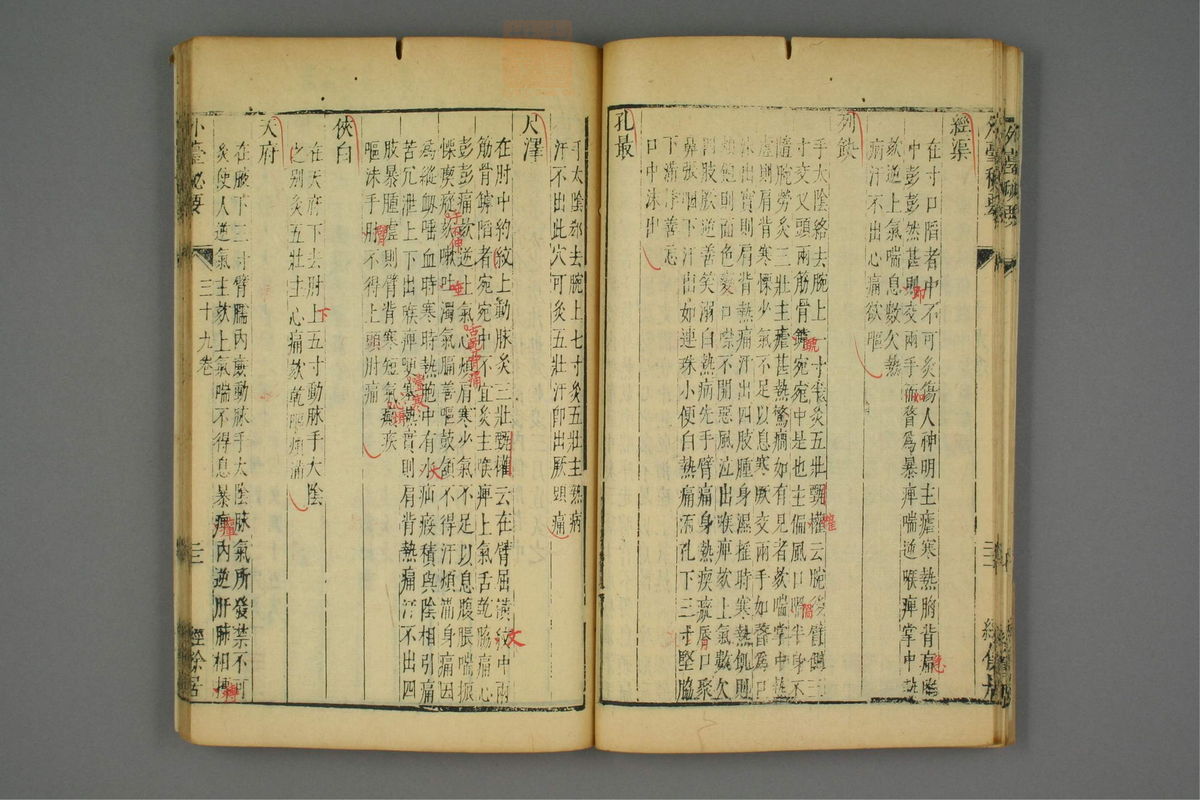 經渠
在寸口陷者中不可灸傷人神明主瘧寒熱胸背痛
中彭彭然甚則交兩手而瞀為暴痺喘逆喉痺掌中熱
欬逆上氣喘息數欠熱
病汗不出心痛欲嘔
列缺
手太陰絡去腕上一寸半灸五壯甄權云腕後臂側三
寸交叉頭兩筋骨宛宛中是也主偏風口喎半身不
隨腕勞灸三壯主瘧甚熱驚癇如有見者欬喘掌中熱
虛則肩背寒慄少氣不足以息寒厥交兩手如瞀為口
沫出實則肩背熱痛汗出四肢腫身濕搖時寒熱飢則
煩飽則面色變口噤不開惡風泣出喉痺欬上氣數欠
肢厥逆善笑溺白熱病先手臂痛身熱瘈瘲唇口聚
鼻張目下汗出如連珠小便白熱痛 孔下三寸堅脇
下滿悸善忘
口中沫出
孔最
手太陰郄去腕上七寸灸五壯主熱病
汗不出此穴可灸五壯汗即出厥頭痛
尺澤
在肘中約紋上動脉灸三壯甄權云在臂屈橫紋中兩
筋骨罅陷者宛宛中不宜灸主喉痺上氣舌乾脇痛心
彭彭痛欬逆上氣心煩肩寒少氣不足以息腹脹喘振
慄瘈瘲欬嗽吐濁氣膈善嘔鼓頷不得汗煩滿身痛因
為縱衂唾血時寒時熱胞中有大疝瘕積與陰相引痛
苦冗泄上下出喉痺哽塞熱實則肩背熱痛汗不出四
肢暴腫虛則臂背寒短氣癲疾
嘔沫手肘不得上頭肘痛
俠白
在天府下去肘上五寸動脉手太陰
之別灸五壯主心痛欬乾嘔煩滿
天府
在腋下三寸臂臑內廉動脉手太陰脉氣所發禁不可
灸使人逆氣主欬上氣喘不得息暴癉內逆肝肺相摶
外臺秘要
三十九卷
三
經餘居